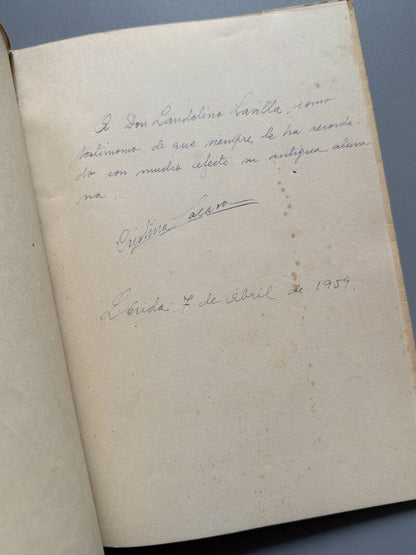 A Don Landelino Lavilla, como
testimonio de que siempre le ha recorda-
do con mucho afecto, su antigua alum-
na,
Cristina
Lérida 7 de Abril de 1959.